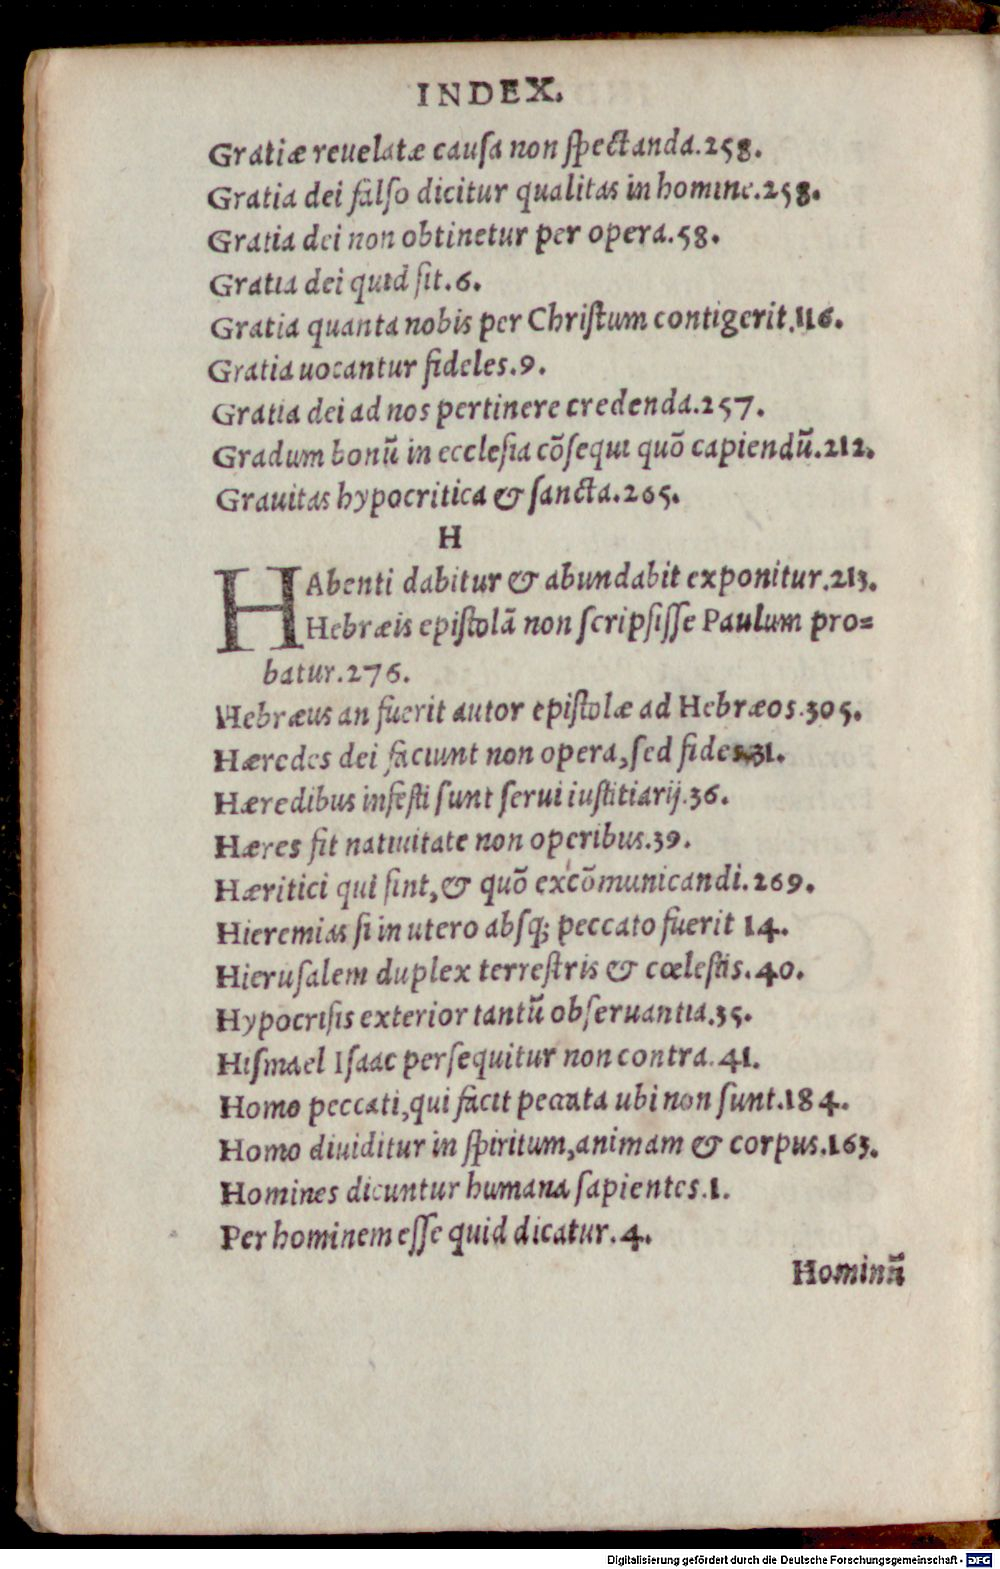 INDEX.
Gratiæ reuelatæ causa non spectanda.258.
Gratia dei falso dicitur qualitas in homine.258.
Gratia dei non obtinetur per opera.58.
Gratia dei quid sit.6.
Gratia quanta nobis per Christum contigerit.116.
Gratia uocantur fideles.9.
Gratia dei ad nos pertinere credenda.257.
Gradum bonũ in ecclesia cõsequi quõ capiendũ.212.
Grauitas hypocritica & sancta.265.
H
HAbenti dabitur & abundabit exponitur.213.
Hebræis epistolã non scripsisse Paulum pro=
batur.276.
Hebræus an fuerit autor epistolæ ad Hebræos.305.
Hæredes dei faciunt non opera, sed fides.31.
Hæredibus infesti sunt serui iustitiarij.36.
Hæres fit natiuitate non operibus.39.
Hæritici qui sint, & quõ excõmunicandi.269.
Hieremias si in utero absq; peccato fuerit 14.
Hierusalem duplex terrestris & cœlestis.40.
Hypocrisis exterior tantũ obseruantia.35.
Hismael Isaac persequitur non contra.41.
Homo peccati, qui facit peccata ubi non sunt.184.
Homo diuiditur in spiritum, animam & corpus.163.
Homines dicuntur humana sapientes.1.
Per hominem esse quid dicatur.4.
Hominũ
Digitalisierung gefördert durch die Deutsche Forschungsgemeinschaft - DFG